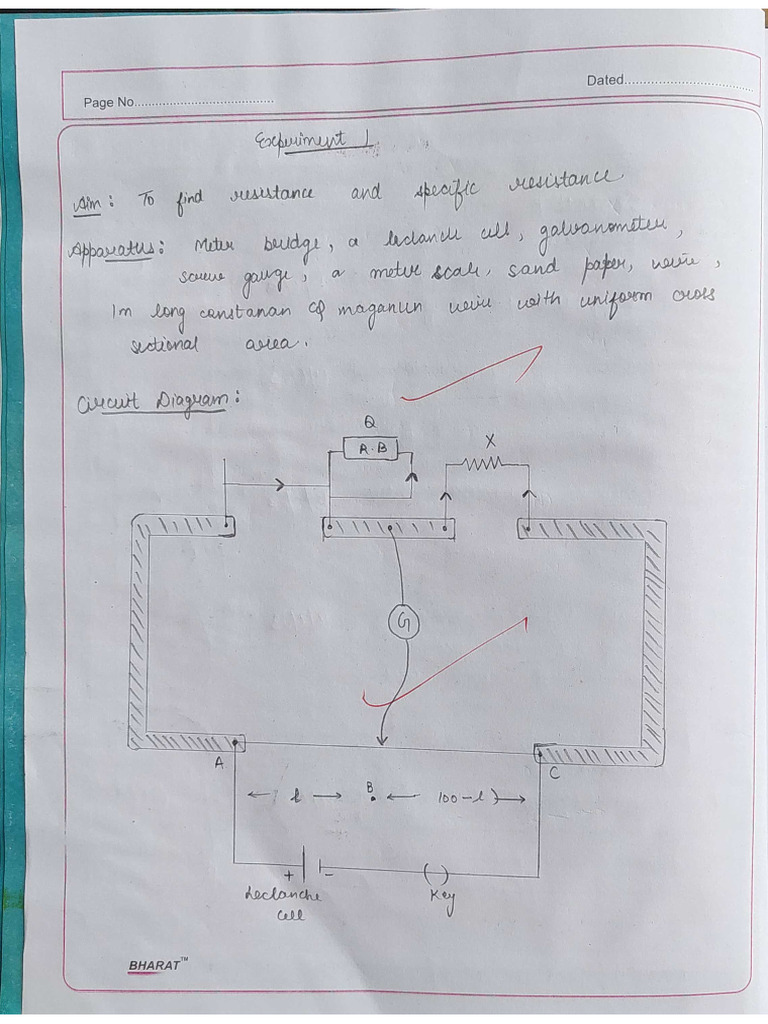 Dated
Page No.
Experiment 1
Aim: To find resistance and specific resistance.
Apparatus: Meter bridge, a leclanche cell, galvanometer,
screw gauge, a meter scale, sand paper, wire,
1m long constanan or maganin wire with uniform cross
sectional area.
Circuit Diagram:
Q
R.B
X
G
A
C
l
B
100-l
+
-
Leclanche
cell
Key
BHARAT™